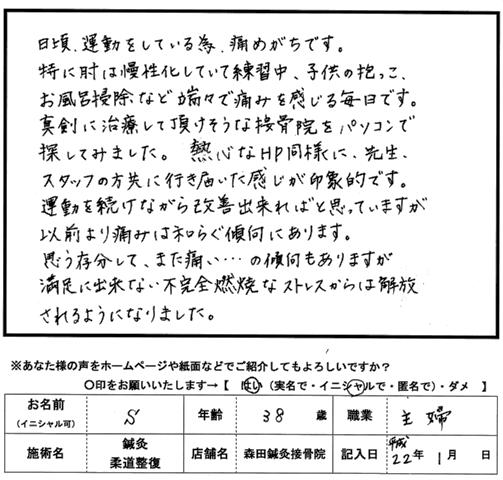 日頃、運動をしている為、痛めがちです。
特に肘は慢性化していて練習中、子供の抱っこ、
お風呂掃除など端々で痛みを感じる毎日です。
真剣に治療して頂けそうな接骨院をパソコンで
探してみました。熱心なHP同様に、先生、
スタッフの方共に行き届いた感じが印象的です。
運動を続けながら改善出来ればと思っていますが
以前より痛みは和らぐ傾向にあります。
思う存分して、また痛い…の傾向もありますが
満足に出来ない不完全燃焼なストレスからは解放
されるようになりました。
※あなた様の声をホームページや紙面などでご紹介してもよろしいですか？
〇印をお願いいたします→【 はい（実名で・イニシャルで・匿名で）・ダメ 】
お名前（イニシャル可） S 年齢 38 歳 職業 主婦
施術名 鍼灸 柔道整復 店舗名 森田鍼灸接骨院 記入日 平成22年1月 日